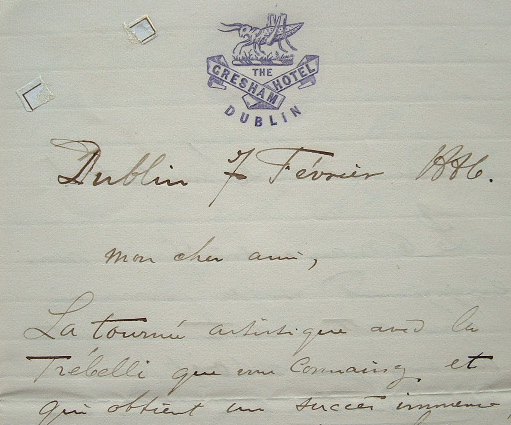 THE
GRESHAM HOTEL
DUBLIN
Dublin 7 Février 1886.
Mon cher ami,
La tournée artistique avec la
Trébelli que vous connaissez, et
qui obtient un succès immense,